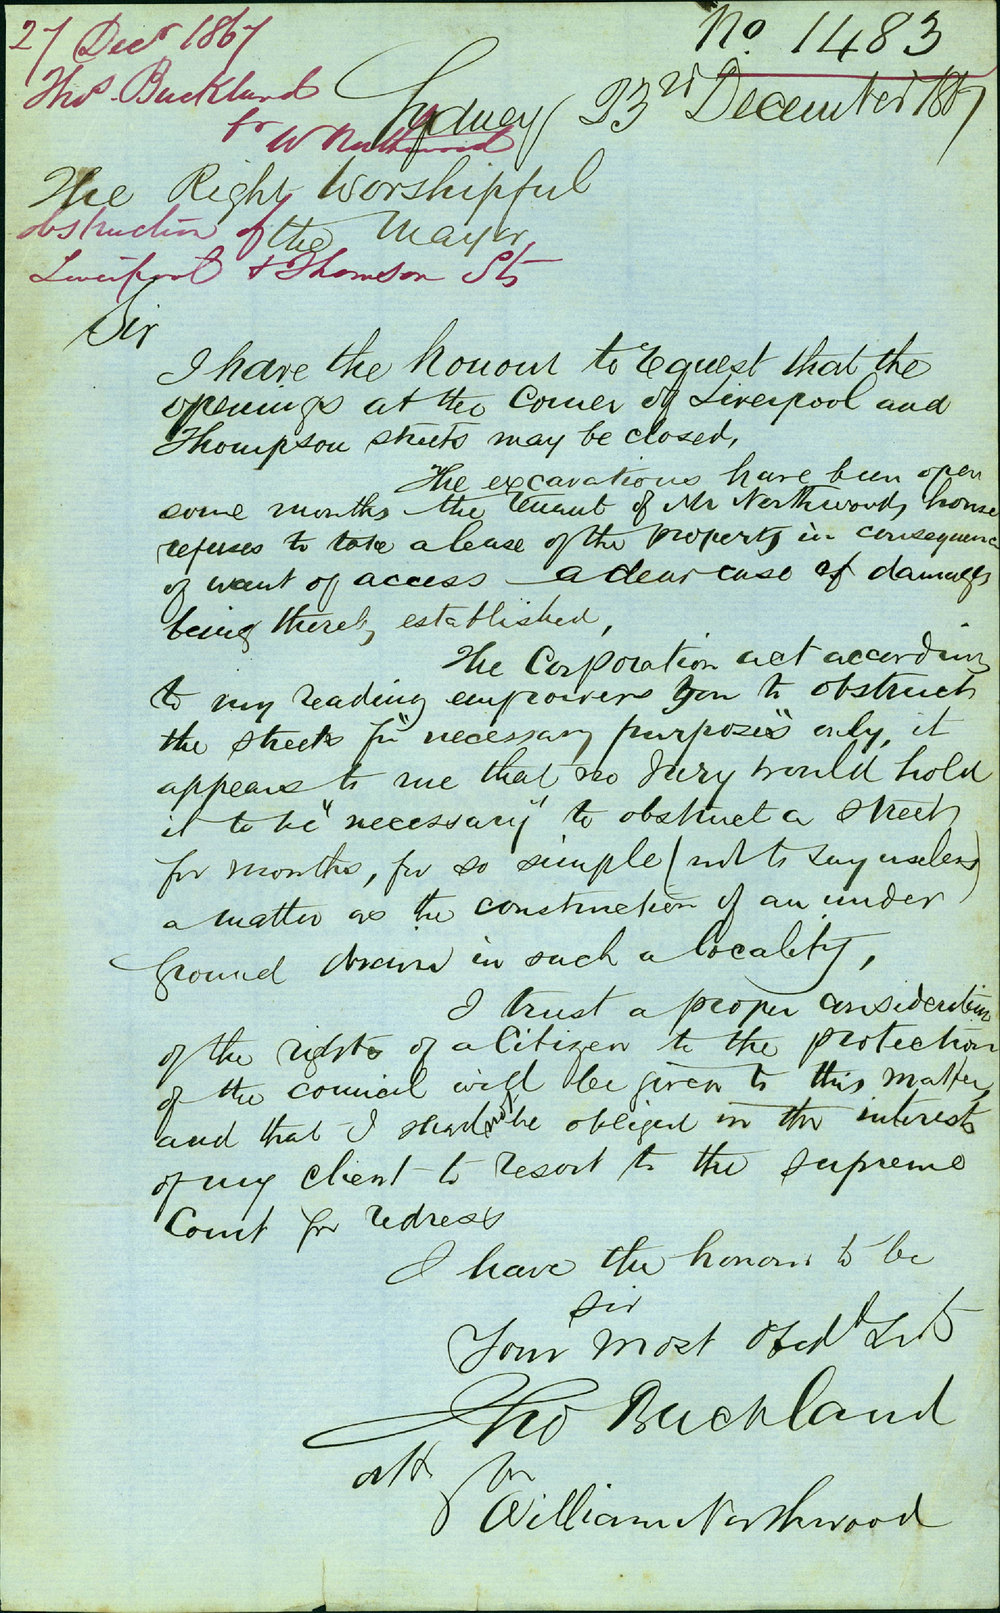 27 Decr 1867
No. 1483
Thos. Buckland
for W Northwood
Sydney 23rd December 1867
The Right Worshipful
the Mayor
obstruction of
Liverpool & Thomson Sts
Sir
I have the honour to request that the
openings at the Corner of Liverpool and
Thompson streets may be closed,
The excavations have been open
some months the tenant of Mr Northwoods house
refuses to take a lease of the property in consequence
of want of access – a clear case of damages
being thereby established,
The Corporation act according
to my reading empowers you to obstruct
the streets for "necessary purposes" only, it
appears to me that no Jury would hold
it to be "necessary" to obstruct a street
for months, for so simple (not to say useless)
a matter as the construction of an under
ground drain in such a locality,
I trust a proper consideration
of the rights of a Citizen to the protection
of the council will be given to this matter,
and that I shall not be obliged in the interests
of my client to resort to the Supreme
Court for redress
I have the honour to be
Sir
Your most Obedt Svt
Tho Buckland
for
William Northwood